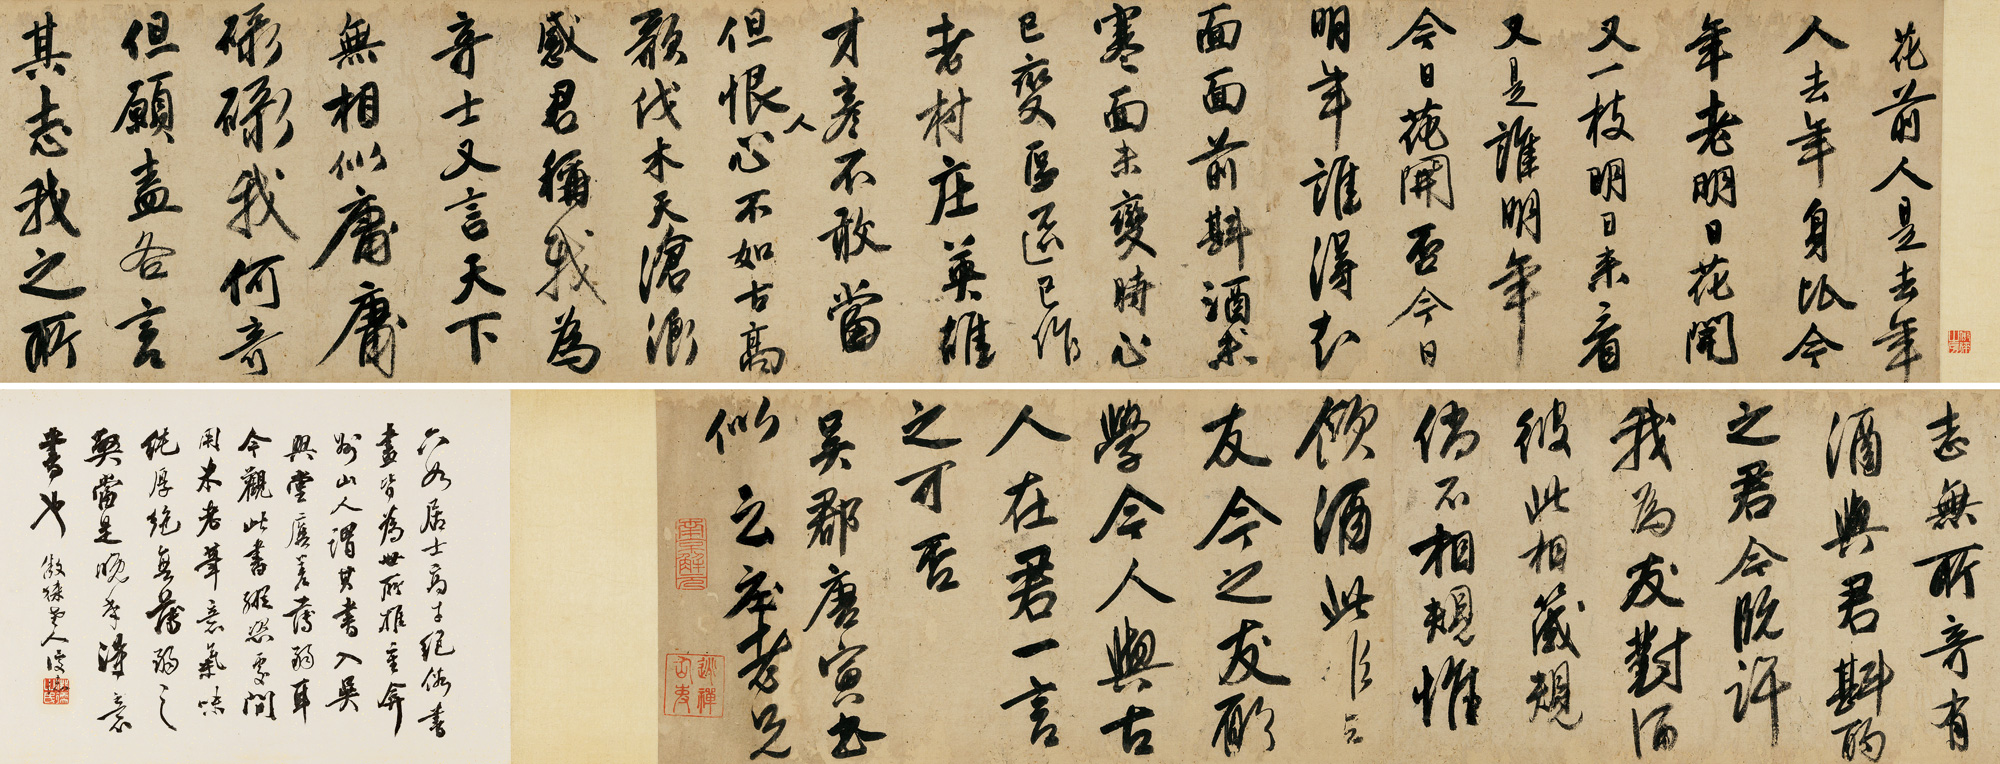 花前人是去年
人去年身比今
年老明日花開
又一枝明日來看
又是誰明年
今日花開否今日
明年誰得知
面面前斟酒未
寒面未變時心
已變區區已作
老村庄英雄
才彥不敢當
但恨人心不如古高
歌伐木天滄浪
感君稱我為
奇士又言天下
無相似庸庸
碌碌我何奇
但願盡各言
其志我之所
志無所奇有
酒與君斟酌
之君今既許
我為友對酒
彼此相箴規
倘不相規惟
飲酒此
友今之友願
學今人與古
人在君一言
之可否
吳郡唐寅書
似云庄老兄
南京解元
逃禪仙吏
六如居士高才絕俗書
畫皆為世所推重弇
州山人謂其書入吳
興堂廡差薄弱耳
今觀此書縱恣處間
用米老筆意氣味
純厚絕無薄弱之
弊當是晚年得意
書也